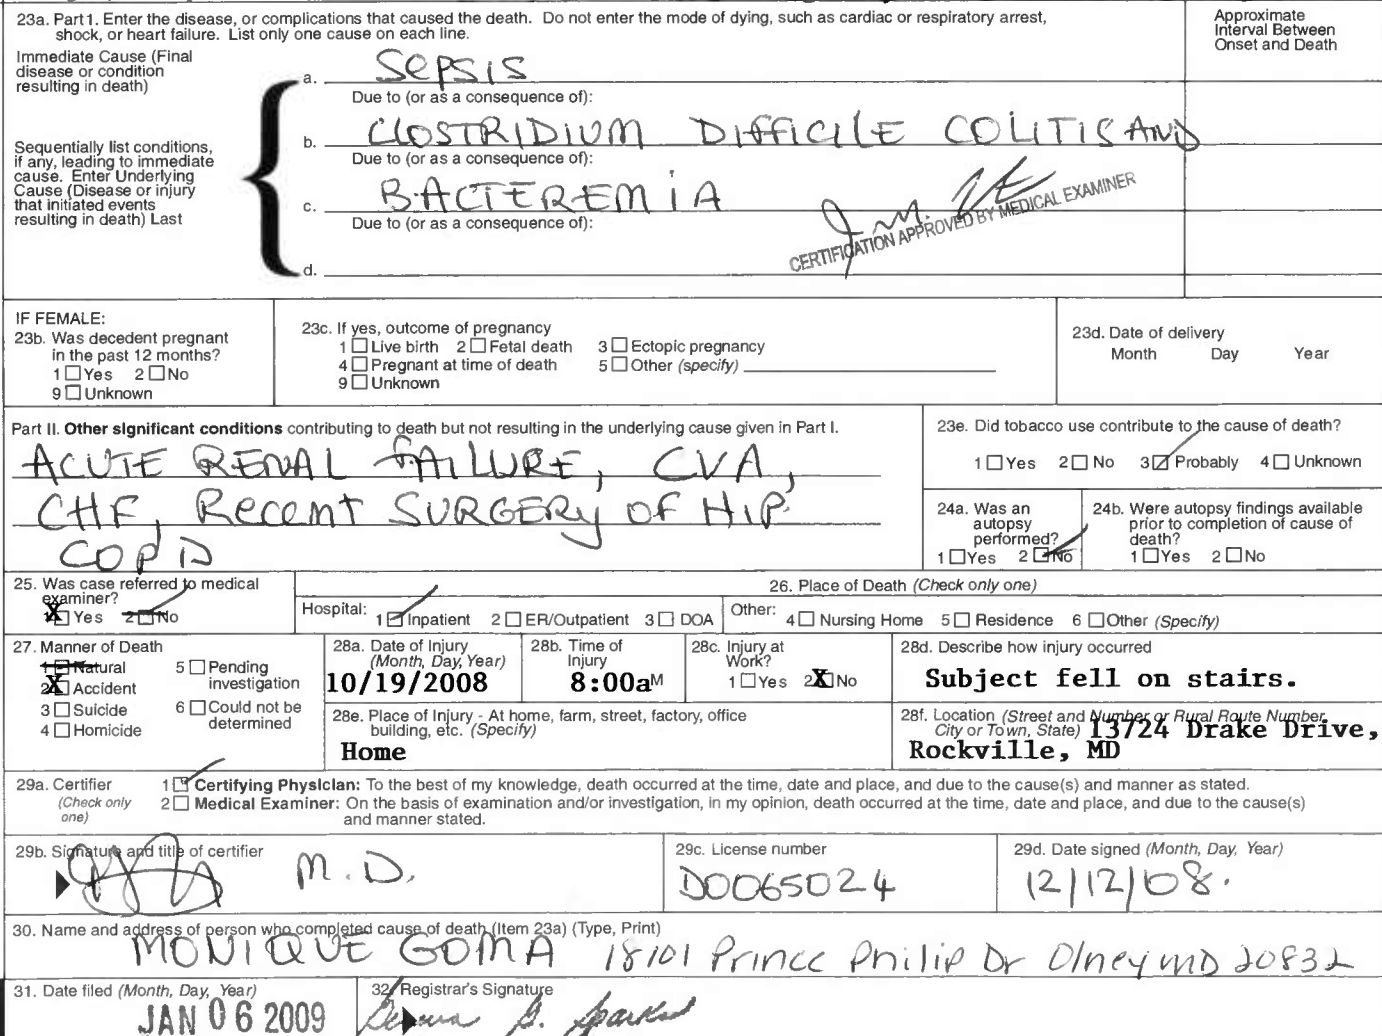 23a. Part 1. Enter the disease, or complications that caused the death. Do not enter the mode of dying, such as cardiac or respiratory arrest,
shock, or heart failure. List only one cause on each line.
Approximate
Interval Between
Onset and Death
Immediate Cause (Final
disease or condition
resulting in death)
a. Sepsis
Due to (or as a consequence of):
Sequentially list conditions,
if any, leading to immediate
cause. Enter Underlying
Cause (Disease or injury
that initiated events
resulting in death) Last
b. CLOSTRIDIUM DIFFICILE COLITIS AND
Due to (or as a consequence of):
c. BACTEREMIA
Due to (or as a consequence of):
CERTIFICATION APPROVED BY MEDICAL EXAMINER
d.
IF FEMALE:
23b. Was decedent pregnant
in the past 12 months?
1 Yes 2 No
9 Unknown
23c. If yes, outcome of pregnancy
1 Live birth 2 Fetal death 3 Ectopic pregnancy
4 Pregnant at time of death 5 Other (specify)
9 Unknown
23d. Date of delivery
Month Day Year
Part II. Other significant conditions contributing to death but not resulting in the underlying cause given in Part I.
ACUTE RENAL FAILURE, CVA,
CHF, Recent SURGERY OF HIP
COPD
23e. Did tobacco use contribute to the cause of death?
1 Yes 2 No 3 Probably 4 Unknown
24a. Was an
autopsy
performed?
1 Yes 2 No
24b. Were autopsy findings available
prior to completion of cause of
death?
1 Yes 2 No
25. Was case referred to medical
examiner?
1 X Yes 2 No
26. Place of Death (Check only one)
Hospital: 1 Inpatient 2 ER/Outpatient 3 DOA
Other: 4 Nursing Home 5 Residence 6 Other (Specify)
27. Manner of Death
1 Natural
2 X Accident
3 Suicide
4 Homicide
5 Pending
investigation
6 Could not be
determined
28a. Date of Injury
(Month, Day, Year)
10/19/2008
28b. Time of
Injury
8:00a M
28c. Injury at
Work?
1 Yes 2 X No
28d. Describe how injury occurred
Subject fell on stairs.
28e. Place of Injury - At home, farm, street, factory, office
building, etc. (Specify)
Home
28f. Location (Street and Number or Rural Route Number,
City or Town, State) 13724 Drake Drive,
Rockville, MD
29a. Certifier
(Check only
one)
1 Certifying Physician: To the best of my knowledge, death occurred at the time, date and place, and due to the cause(s) and manner as stated.
2 Medical Examiner: On the basis of examination and/or investigation, in my opinion, death occurred at the time, date and place, and due to the cause(s)
and manner stated.
29b. Signature and title of certifier
M.D.
29c. License number
D0065024
29d. Date signed (Month, Day, Year)
12/12/08.
30. Name and address of person who completed cause of death (Item 23a) (Type, Print)
MONIQUE GOMA 18101 Prince Philip Dr Olney MD 20832
31. Date filed (Month, Day, Year)
JAN 06 2009
32. Registrar's Signature